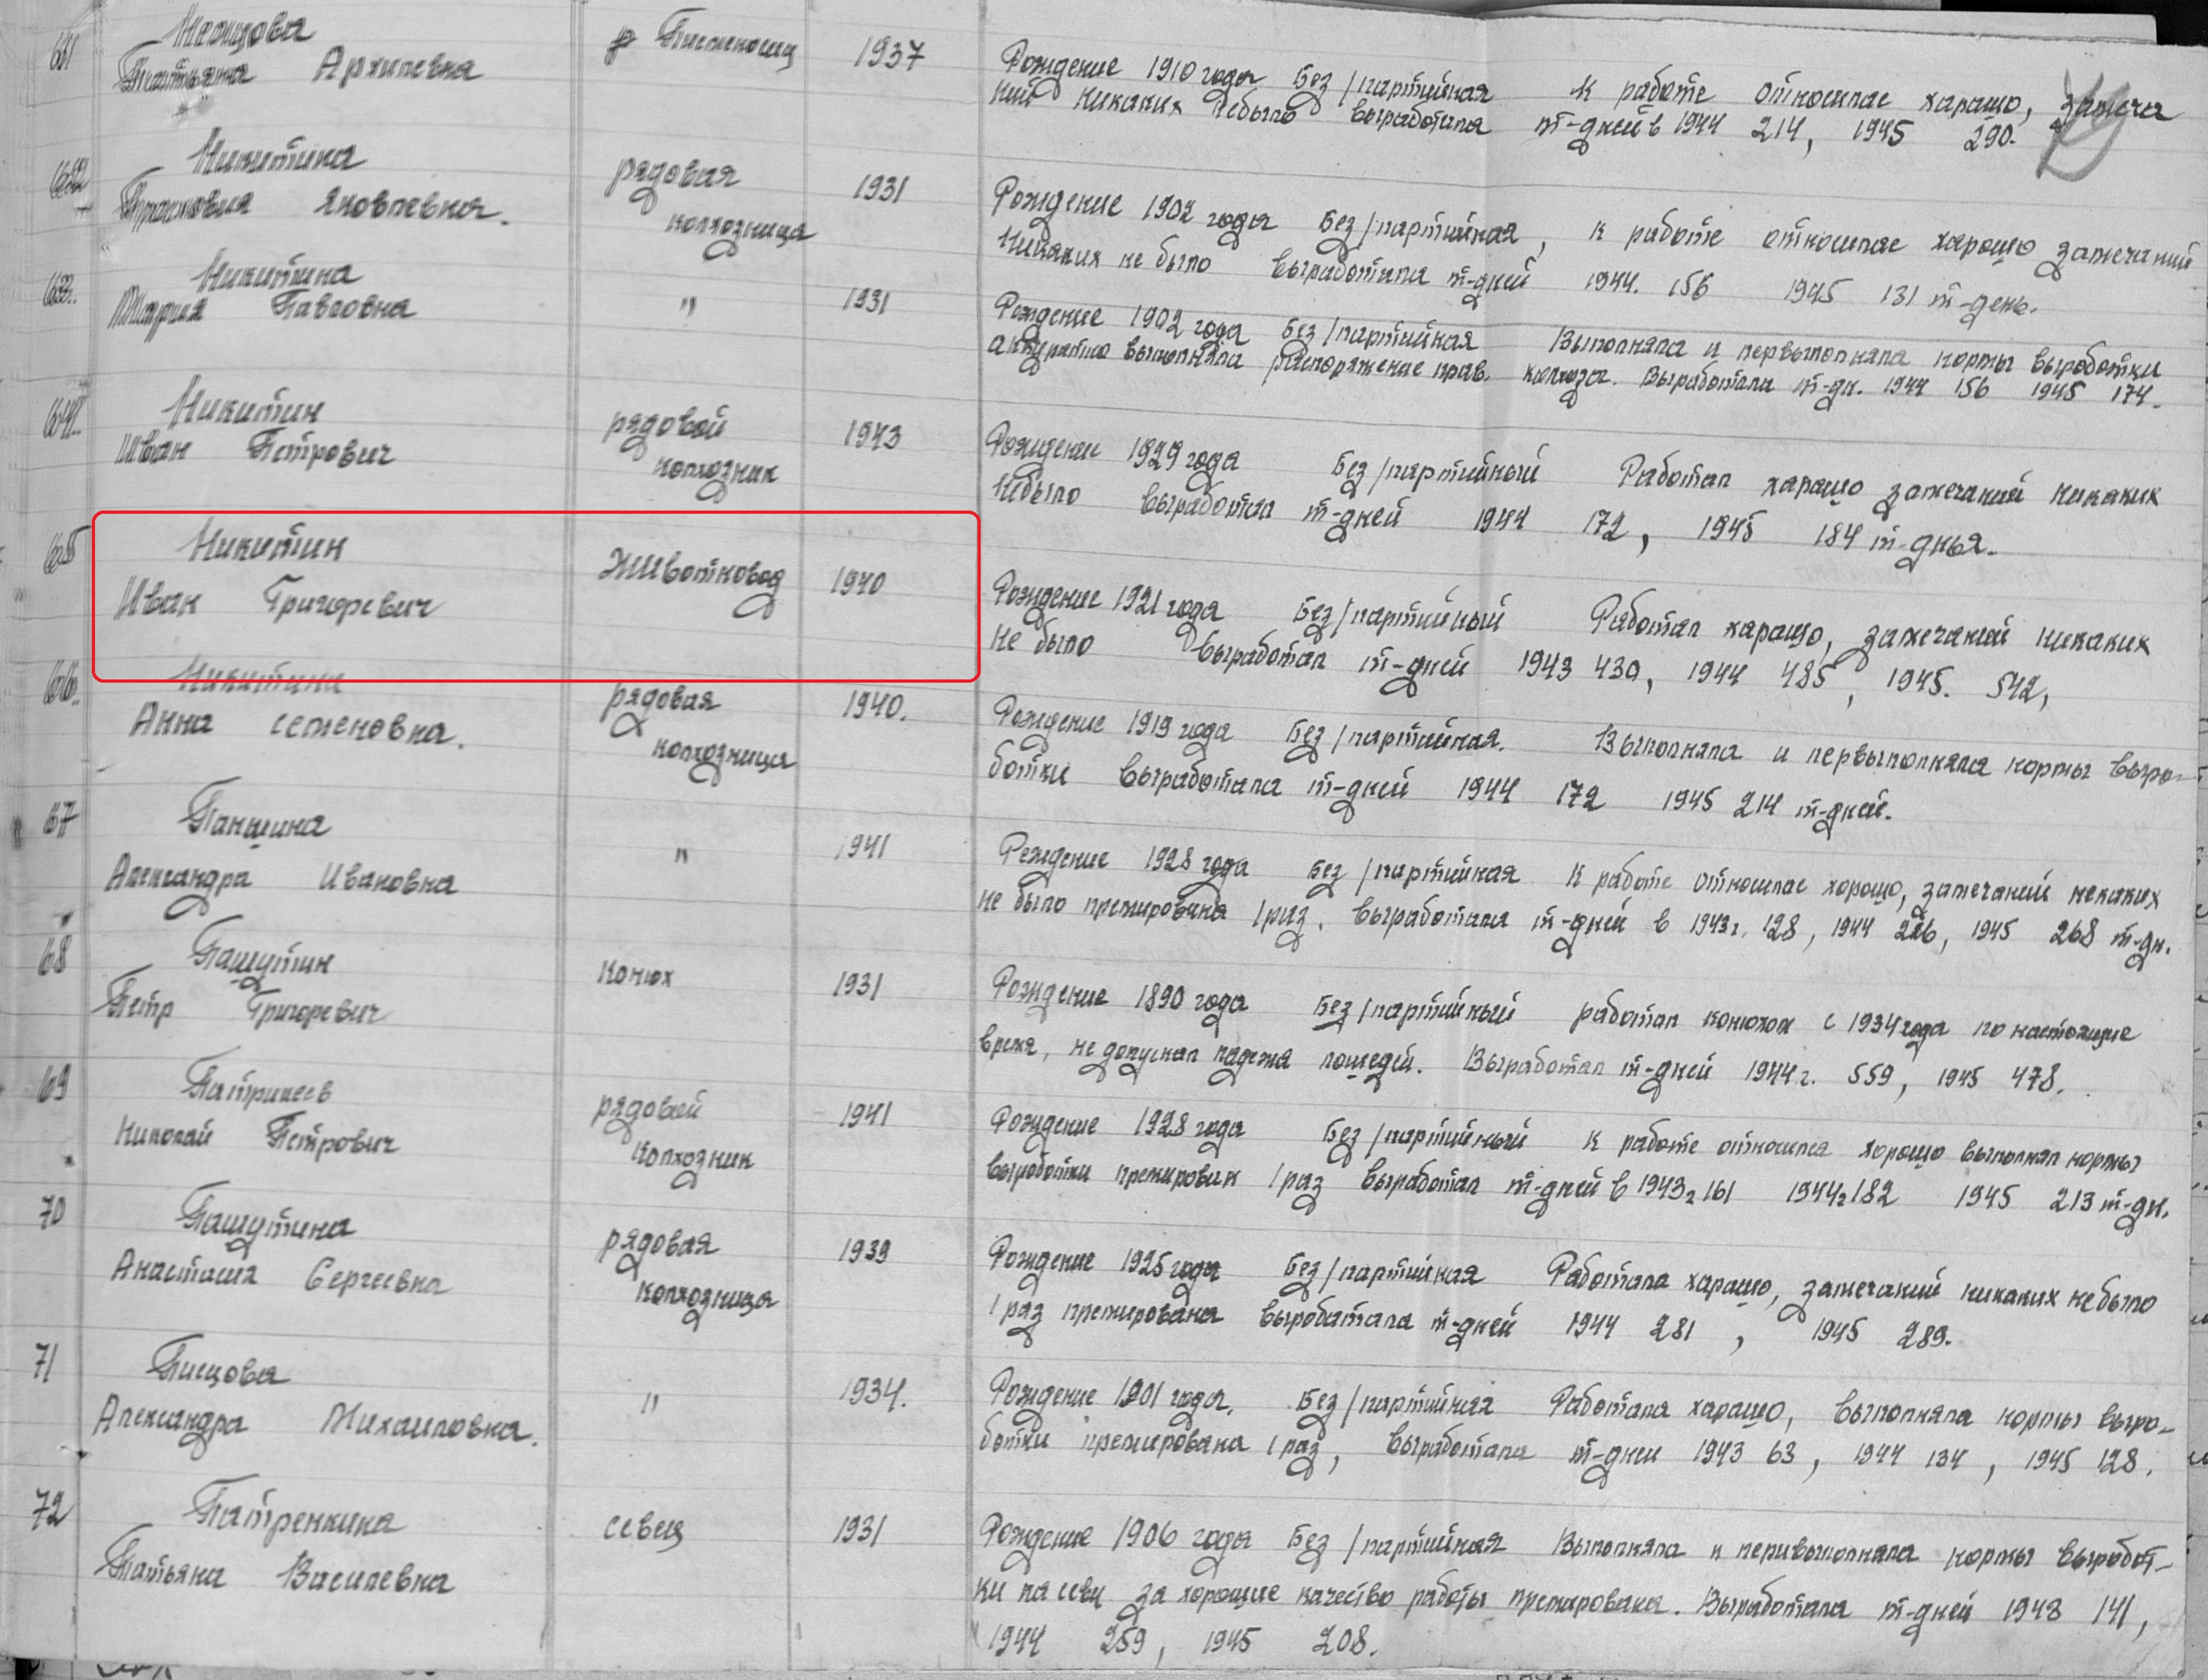 61 Немцова
Татьяна Архиповна
1937
Рождение 1910 года Без/партийная К работе относилас харашо, замеча
ний никаких небыло выработала т-дней в 1944 214, 1945 290.
62 Никитина
Прасковия Яковлевна.
рядовая
колхозница
1931
Рождение 1902 года Без/партийная, к работе относилас харошо замечаний
никаких не было выработала т-дней 1944. 156 1945 131 т-день.
63. Никитина
Мария Павловна
" 1931
Рождение 1902 года Без/партийная Выполняла и первыполняла нормы выработки
аккуратно выполняла распоряжение прав. колхоза. Выработала т-дн. 1944 156 1945 174.
64. Никитин
Иван Петрович
рядовой
колхозник
1943
Рождение 1929 года Без/партийный Работал харашо замечаний никаких
небыло выработал т-дней 1944 172, 1945 184 т-дньа.
65 Никитин
Иван Григоревич
Животновод 1940
Рождение 1921 года Без/партийный Работал харашо, замечаний никаких
не было Выработал т-дней 1943 430, 1944 485, 1945. 542,
66. Никитина
Анна Семеновна.
рядовая
колхозница
1940.
Рождение 1919 года Без/партийная. Выполняла и первыполняла нормы выра-
ботки выработала т-дней 1944 172 1945 214 т-дней.
67 Паньшина
Александра Ивановна
" 1941
Рождение 1928 года Без/партийная К работе относилас хорошо, замечаний некаких
не было премирована 1 раз. выработала т-дней в 1943 г. 128, 1944 226, 1945 268 т-дн.
68 Пашутин
Петр Григоревич
Конюх 1931
Рождение 1890 года Без/партийный работал конюхом с 1934 года по настоящие
время, не допускал падежа лошедей. Выработал т-дней 1944 г. 559, 1945 478.
69 Патрикеев
Николай Петрович
рядовой
Колхозник
1941
Рождение 1928 года Без/партийный К работе относился хорошо выполнял нормы
выработки премирован 1 раз выработал т-дней в 1943 г 161 1944 г 182 1945 213 т-дн.
70 Пашутина
Анастасия Сергеевна
рядовая
колхозница
1939
Рождение 1925 года Без/партийная Работала харашо, замечаний никаких небыло
1 раз премирована выработала т-дней 1944 281, 1945 289.
71 Писцова
Александра Михаиловна.
" 1934.
Рождение 1901 года. Без/партийная Работала харашо, выполняла нормы выра-
ботки премирована 1 раз, выработала т-дней 1943 63, 1944 134, 1945 128.
72 Патренкина
Татьяна Василевна
севец 1931
Рождение 1906 года Без/партийная Выполняла и перивыполняла нормы выработ-
ки на севи за хорошие качество работы премирована. Выработала т-дней 1943 141,
1944 259, 1945 208.